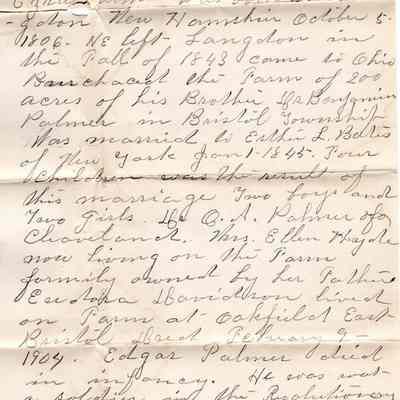 -gdon New Hamnshire October 5-
1806. He left Langdon in
the Fall of 1843 came to Ohio
Burchaced the Farm of 200
acres of his Brother Dr Benjamin
Palmer in Bristol Township
Was married to Esther L. Bates
of New York Jan 1-1845. Four
children was the result of
this marriage Two boys and
Two Girls. Dr O.A. Palmer of
Cleaveland. Mrs. Ellen Hyde
now living on the Farm
formily owned by her Father
Eudora Davidson lived
on Farm at Oakfield East
Bristol Died Febuary 9-
1904. Edgar Palmer died
in infancy. He was not
a soldier in the Revolutionary